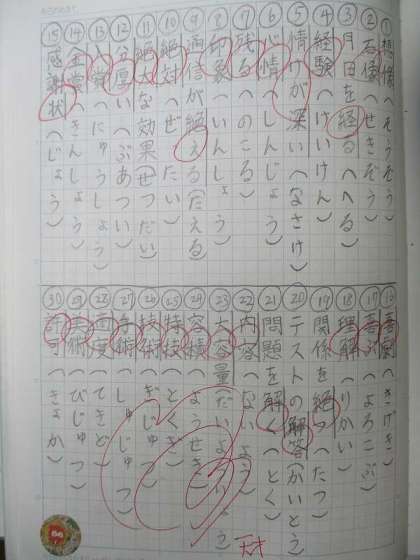 ①想像(そうぞう)
②石像(せきぞう)
③月日を経る(へる)
④経験(けいけん)
⑤情けが深い(なさけ)
⑥心情(しんじょう)
⑦残る(のこる)
⑧印象(いんしょう)
⑨通信が絶える(たえる)
⑩絶対(ぜったい)
⑪絶大な効果(ぜつだい)
⑫分厚い(ぶあつい)
⑬入賞(にゅうしょう)
⑭金賞(きんしょう)
⑮感謝状(じょう)
⑯喜劇(きげき)
⑰喜ぶ(よろこぶ)
⑱理解(りかい)
⑲関係を絶つ(たつ)
⑳テストの解答(かいとう)
㉑問題を解く(とく)
㉒内容(ないよう)
㉓大容量(だいようりょう)
㉔容積(ようせき)
㉕特技(とくぎ)
㉖技術(ぎじゅつ)
㉗手術(しゅじゅつ)
㉘適度(てきど)
㉙美術(びじゅつ)
㉚許可(きょか)
天才